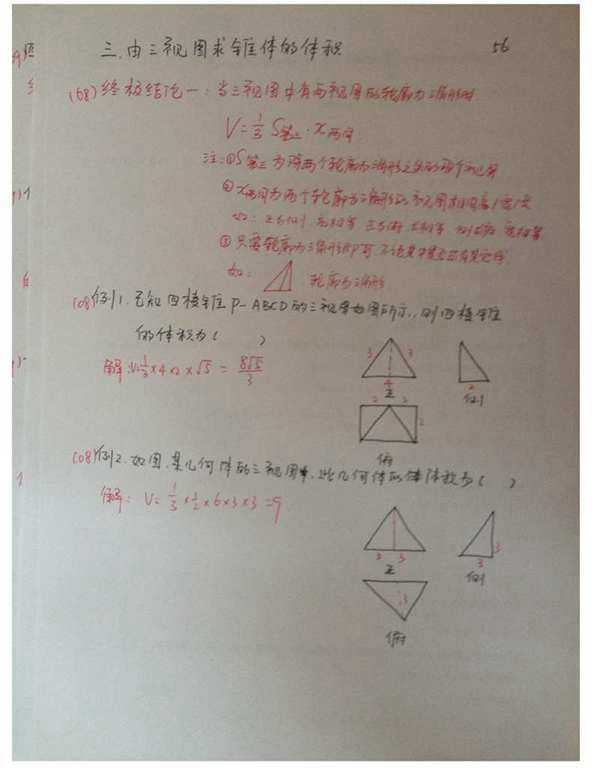 三.由三视图求锥体的体积 56
(08)终极结论一:当三视图中有两视图的轮廓为三角形时
V=1/3 S第三·x两同
注:①S第三为除两个轮廓为三角形之外的
②x两同为两个轮廓为三角形的 相同高/宽/长
如:正与侧,高相等 正与俯 长相等 宽相等
③只要轮廓为三角形即可,不论其中
如: 轮廓为三角形
(08)例1.已知四棱锥P-ABCD的三视图如图所示,则四棱锥
的体积为( )
解:V=1/3×4×2×√5=8√5/3
3 3
4
正
2
侧
2 2
2
俯
(08)例2.如图,某几何体的三视图,此几何体的体积为( )
解: V=1/3×1/2×6×3×3=9
3 3
正
3
3
侧
3
俯